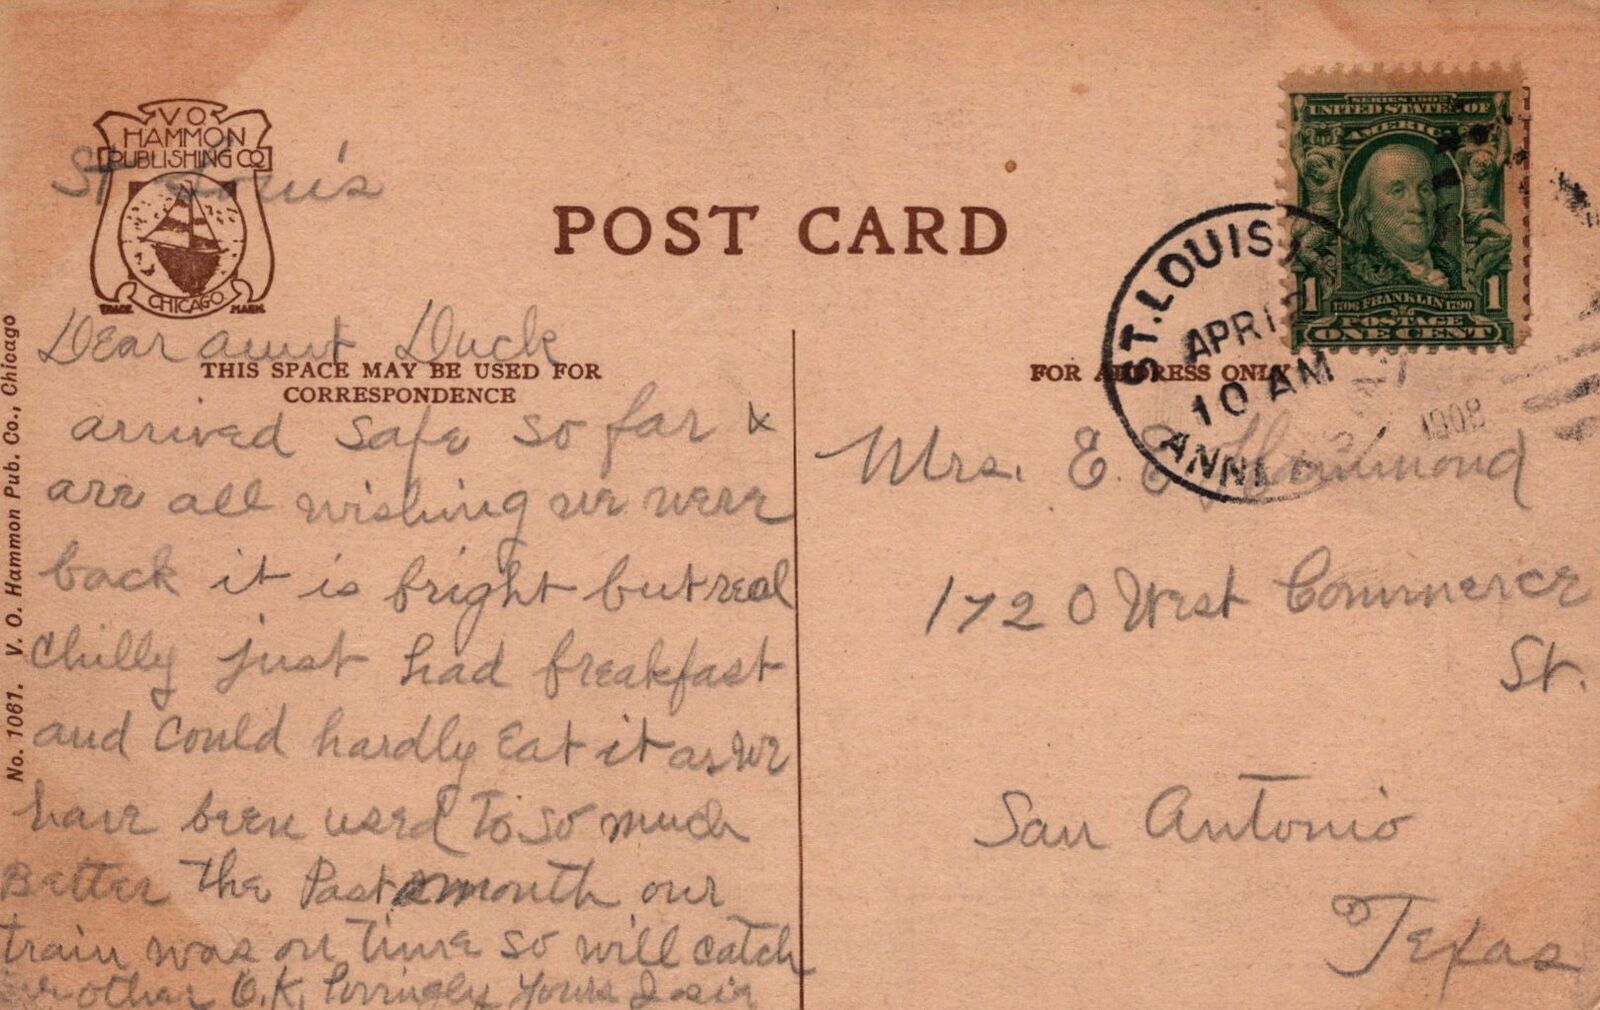 V O
HAMMON
PUBLISHING CO
CHICAGO
TRADE MARK
St Louis
POST CARD
SERIES 1902
UNITED STATES OF
AMERICA
1 1
1706 FRANKLIN 1790
POSTAGE
ONE CENT
ST. LOUIS,
APR 12
10 AM
1908
No. 1061. V. O. Hammon Pub. Co., Chicago
THIS SPACE MAY BE USED FOR
CORRESPONDENCE
Dear aunt Duck
arrived safe so far &
are all wishing we were
back it is bright but real
chilly just had breakfast
and could hardly eat it as we
have been used to so much
Better the Past month our
train was on time so will catch
our other O.K. Lovingly yours Josie
FOR ADDRESS ONLY
Mrs. E. E. Hammond
1720 West Commerce
St.
San Antonio
Texas